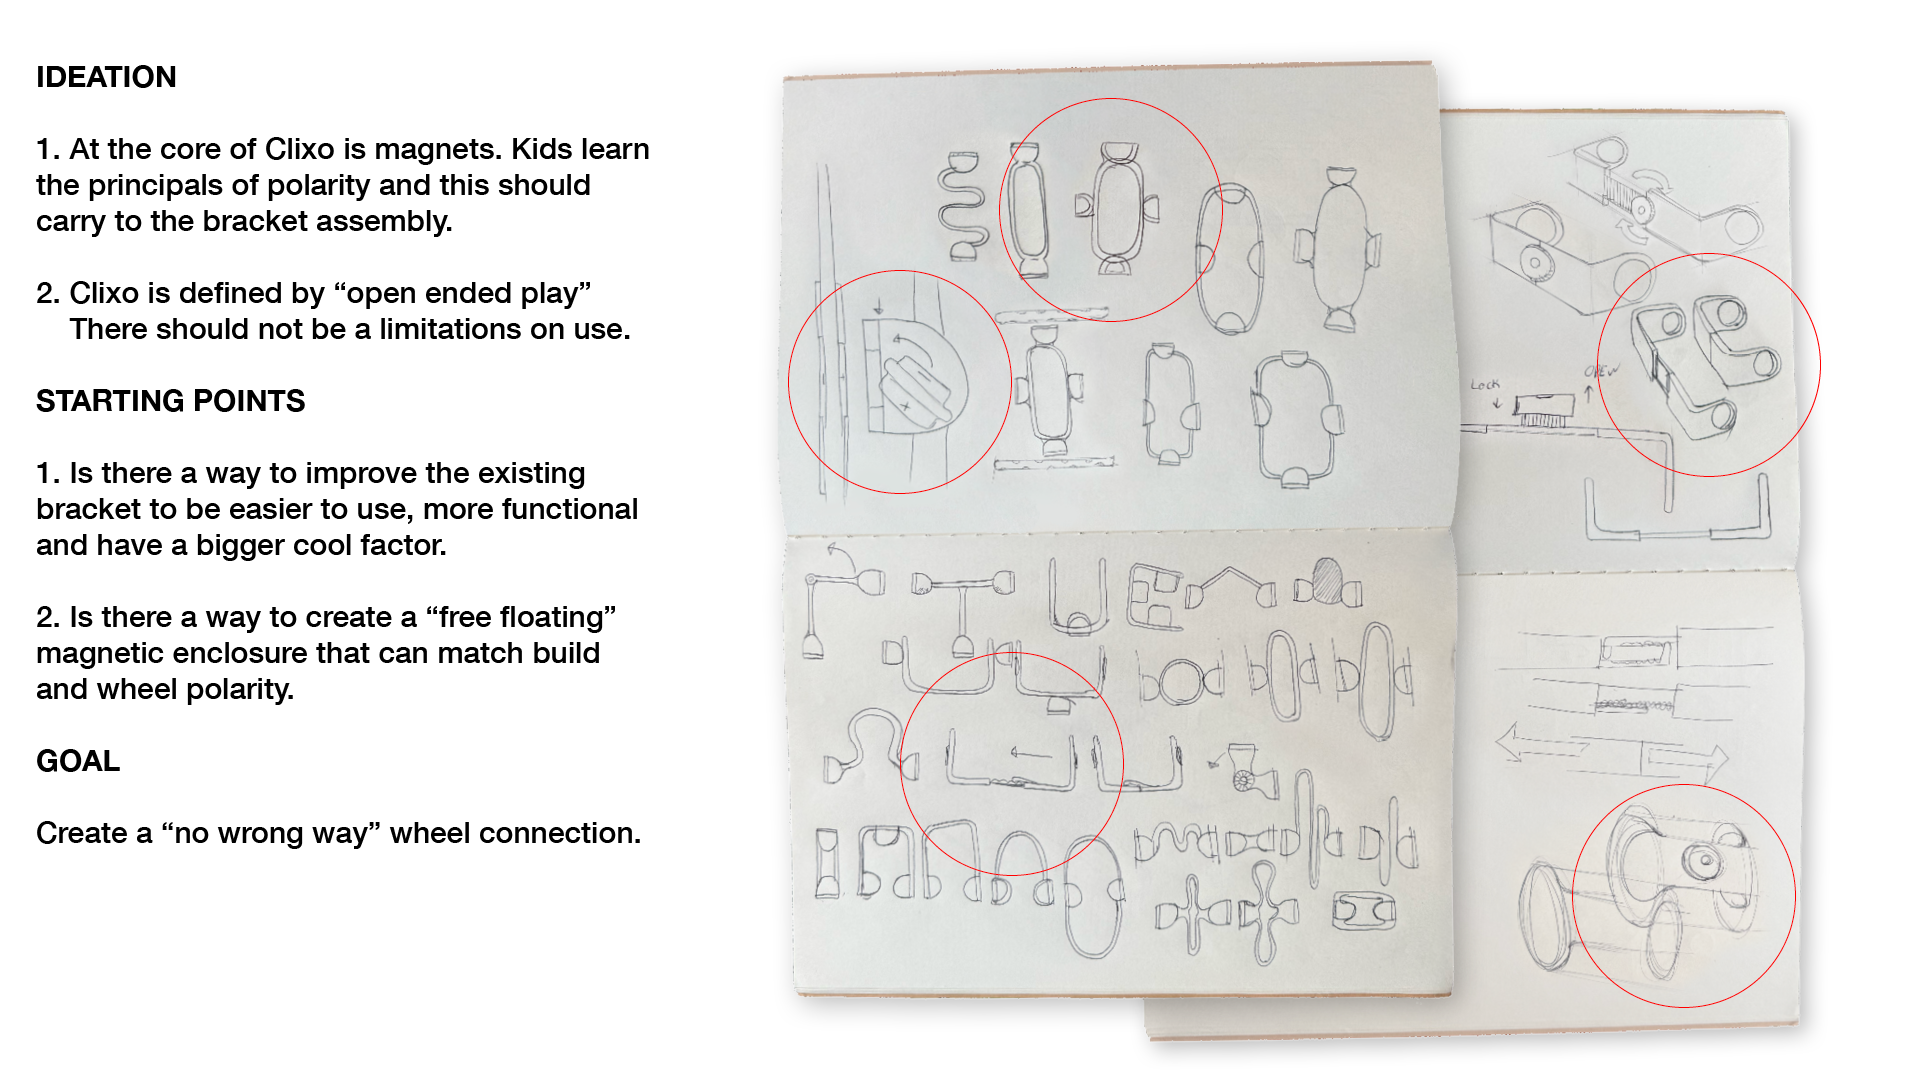 IDEATION
1. At the core of Clixo is magnets. Kids learn
the principals of polarity and this should
carry to the bracket assembly.
2. Clixo is defined by “open ended play”
There should not be a limitations on use.
STARTING POINTS
1. Is there a way to improve the existing
bracket to be easier to use, more functional
and have a bigger cool factor.
2. Is there a way to create a “free floating”
magnetic enclosure that can match build
and wheel polarity.
GOAL
Create a “no wrong way” wheel connection.
Lock
OPEN